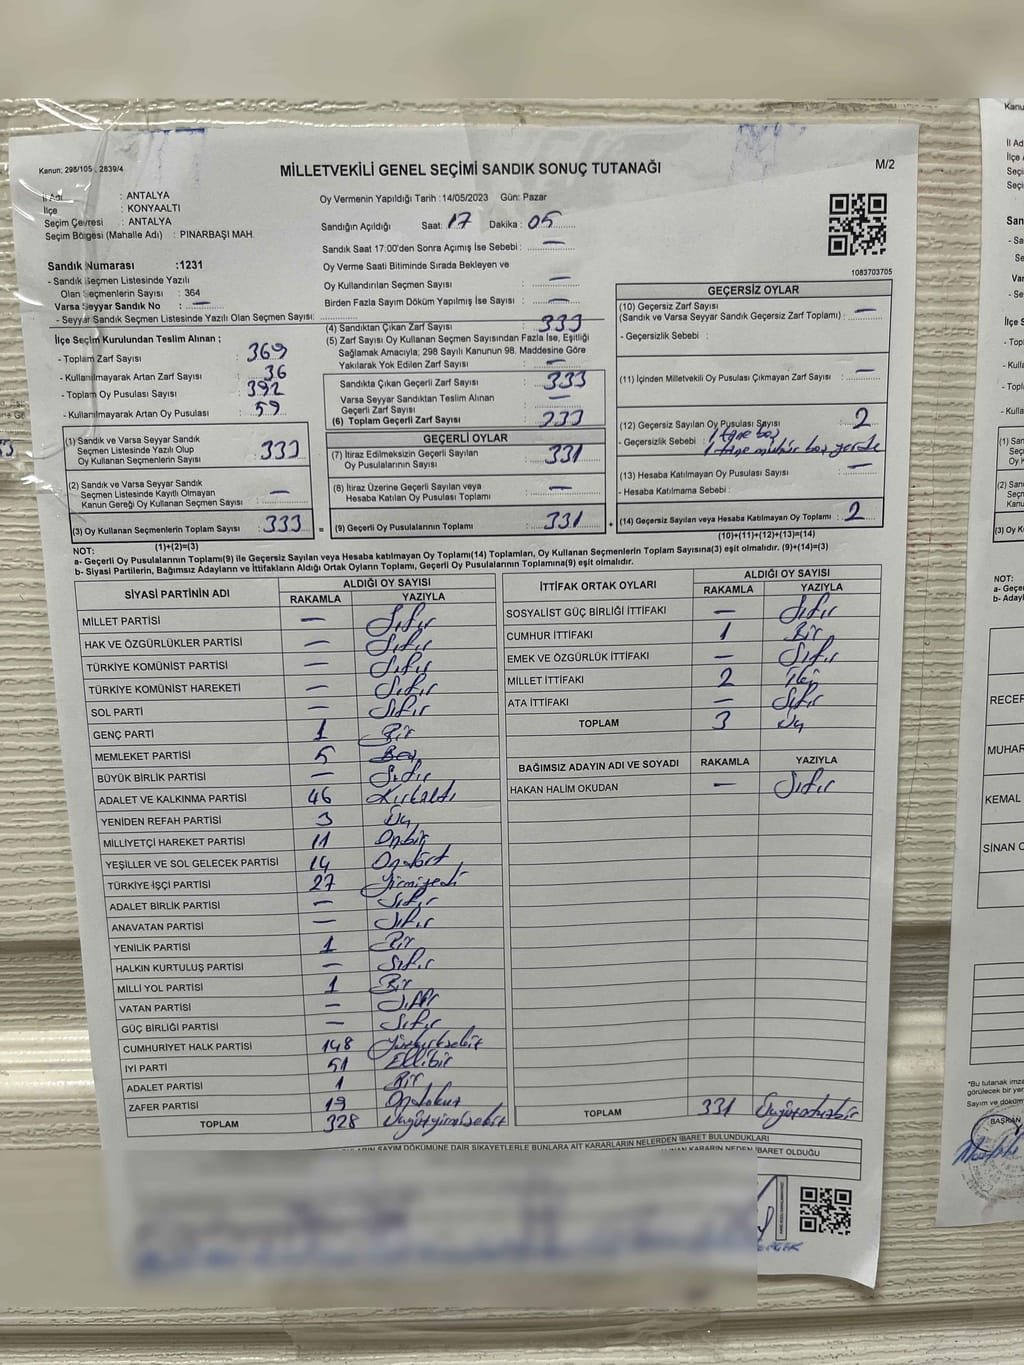 Kanun: 298/105 , 2839/4
MİLLETVEKİLİ GENEL SEÇİMİ SANDIK SONUÇ TUTANAĞI
M/2
İl Adı : ANTALYA
İlçe : KONYAALTI
Seçim Çevresi : ANTALYA
Seçim Bölgesi (Mahalle Adı) : PINARBAŞI MAH
Oy Vermenin Yapıldığı Tarih :14/05/2023 Gün: Pazar
Sandığın Açıldığı Saat: 17 Dakika : 05
Sandık Saat 17:00'den Sonra Açımış İse Sebebi : —
Oy Verme Saati Bitiminde Sırada Bekleyen ve
Oy Kullandırılan Seçmen Sayısı : —
Birden Fazla Sayım Döküm Yapılmış İse Sayısı : —
1083703705
Sandık Numarası :1231
- Sandık Seçmen Listesinde Yazılı
Olan Seçmenlerin Sayısı : 364
Varsa Seyyar Sandık No : —
- Seyyar Sandık Seçmen Listesinde Yazılı Olan Seçmen Sayısı:
İlçe Seçim Kurulundan Teslim Alınan ;
- Toplam Zarf Sayısı : 369
- Kullanılmayarak Artan Zarf Sayısı : 36
- Toplam Oy Pusulası Sayısı : 392
- Kullanılmayarak Artan Oy Pusulası : 59
(1) Sandık ve Varsa Seyyar Sandık
Seçmen Listesinde Yazılı Olup
Oy Kullanan Seçmenlerin Sayısı : 333
(2) Sandık ve Varsa Seyyar Sandık
Seçmen Listesinde Kayıtlı Olmayan
Kanun Gereği Oy Kullanan Seçmen Sayısı : —
(3) Oy Kullanan Seçmenlerin Toplam Sayısı : 333
(1)+(2)=(3)
(4) Sandıktan Çıkan Zarf Sayısı : 333
(5) Zarf Sayısı Oy Kullanan Seçmen Sayısından Fazla İse, Eşitliği
Sağlamak Amacıyla; 298 Sayılı Kanunun 98. Maddesine Göre
Yakılarak Yok Edilen Zarf Sayısı : —
Sandıkta Çıkan Geçerli Zarf Sayısı : 333
Varsa Seyyar Sandıktan Teslim Alınan
Geçerli Zarf Sayısı : —
(6) Toplam Geçerli Zarf Sayısı : 333
GEÇERLİ OYLAR
(7) İtiraz Edilmeksizin Geçerli Sayılan
Oy Pusulalarının Sayısı : 331
(8) İtiraz Üzerine Geçerli Sayılan veya
Hesaba Katılan Oy Pusulası Toplamı : —
= (9) Geçerli Oy Pusulalarının Toplamı : 331 +
GEÇERSİZ OYLAR
(10) Geçersiz Zarf Sayısı
(Sandık ve Varsa Seyyar Sandık Geçersiz Zarf Toplamı) : —
- Geçersizlik Sebebi :
(11) İçinden Milletvekili Oy Pusulası Çıkmayan Zarf Sayısı : —
(12) Geçersiz Sayılan Oy Pusulası Sayısı : 2
- Geçersizlik Sebebi : 1 tane boş
1 tane mühür boş yerde
(13) Hesaba Katılmayan Oy Pusulası Sayısı : —
- Hesaba Katılmama Sebebi :
(14) Geçersiz Sayılan veya Hesaba Katılmayan Oy Toplamı : 2
(10)+(11)+(12)+(13)=(14)
NOT:
a- Geçerli Oy Pusulalarının Toplamı(9) ile Geçersiz Sayılan veya Hesaba katılmayan Oy Toplamı(14) Toplamları, Oy Kullanan Seçmenlerin Toplam Sayısına(3) eşit olmalıdır. (9)+(14)=(3)
b- Siyasi Partilerin, Bağımsız Adayların ve İttifakların Aldığı Ortak Oyların Toplamı, Geçerli Oy Pusulalarının Toplamına(9) eşit olmalıdır.
SİYASİ PARTİNİN ADI ALDIĞI OY SAYISI
RAKAMLA YAZIYLA
MİLLET PARTİSİ — Sıfır
HAK VE ÖZGÜRLÜKLER PARTİSİ — Sıfır
TÜRKİYE KOMÜNİST PARTİSİ — Sıfır
TÜRKİYE KOMÜNİST HAREKETİ — Sıfır
SOL PARTİ — Sıfır
GENÇ PARTİ 1 Bir
MEMLEKET PARTİSİ 5 Beş
BÜYÜK BİRLİK PARTİSİ — Sıfır
ADALET VE KALKINMA PARTİSİ 46 Kırkaltı
YENİDEN REFAH PARTİSİ 3 Üç
MİLLİYETÇİ HAREKET PARTİSİ 11 Onbir
YEŞİLLER VE SOL GELECEK PARTİSİ 14 Ondört
TÜRKİYE İŞÇİ PARTİSİ 27 Yirmiyedi
ADALET BİRLİK PARTİSİ — Sıfır
ANAVATAN PARTİSİ — Sıfır
YENİLİK PARTİSİ 1 Bir
HALKIN KURTULUŞ PARTİSİ — Sıfır
MİLLİ YOL PARTİSİ 1 Bir
VATAN PARTİSİ — Sıfır
GÜÇ BİRLİĞİ PARTİSİ — Sıfır
CUMHURİYET HALK PARTİSİ 148 Yüzkırksekiz
İYİ PARTİ 51 Ellibir
ADALET PARTİSİ 1 Bir
ZAFER PARTİSİ 19 Ondokuz
TOPLAM 328 Üçyüzyirmisekiz
İTTİFAK ORTAK OYLARI ALDIĞI OY SAYISI
RAKAMLA YAZIYLA
SOSYALİST GÜÇ BİRLİĞİ İTTİFAKI — Sıfır
CUMHUR İTTİFAKI 1 Bir
EMEK VE ÖZGÜRLÜK İTTİFAKI — Sıfır
MİLLET İTTİFAKI 2 İki
ATA İTTİFAKI — Sıfır
TOPLAM 3 Üç
BAĞIMSIZ ADAYIN ADI VE SOYADI RAKAMLA YAZIYLA
HAKAN HALİM OKUDAN — Sıfır
TOPLAM 331 Üçyüzotuzbir
SAYIM DÖKÜMÜNE DAİR ŞİKAYETLERLE BUNLARA AİT KARARLARIN NELERDEN İBARET BULUNDUKLARI
KARARIN NEDEN İBARET OLDUĞU
Kanu
İl Ad
İlçe
Seçi
Seçi
San
NOT:
a- Geçe
b- Aday
RECEF
MUHAR
KEMAL
SİNAN O
*Bu tutanak imza
görülecek bir yer
Sayım ve döküm
BAŞKAN